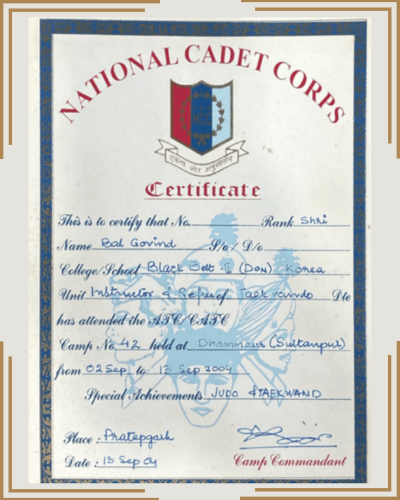 NATIONAL CADET CORPS
NCC
एकता और अनुशासन
Certificate
This is to certify that No. Rank Shri
Name Bal Govind S/o / D/o
College/School Black Belt II (Don) Korea
Unit Instructor & Refree of Taekwondo Dte
has attended the ATC/CATC
Camp No. 42 held at Dhammaur (Sultanpur)
from 02 Sep to 13 Sep 2004
Special Achievements JUDO & TAEKWAND
Place : Pratapgarh
Date : 13 Sep 04 Camp Commandant